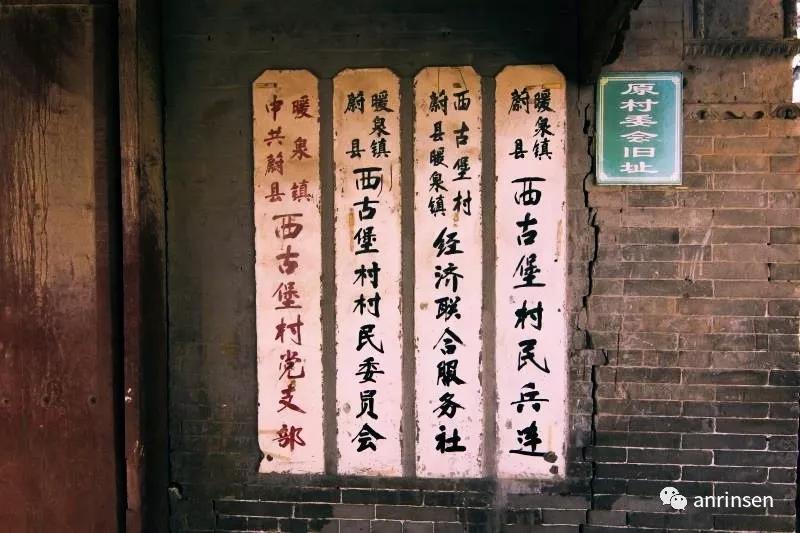 中共蔚县
暖泉镇
西古堡村党支部
蔚县
暖泉镇
西古堡村村民委员会
蔚县暖泉镇
西古堡村
经济联合服务社
蔚县
暖泉镇
西古堡村民兵连
原村委会旧址
anrinsen